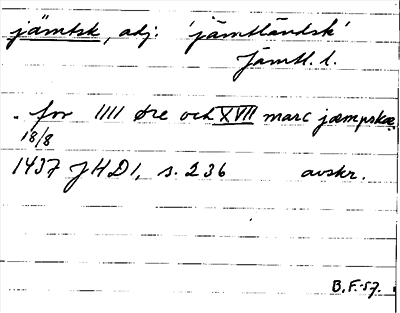 jämtsk, adj. 'jämtländsk'
Jämtl. l.
. for IIII øre och XVII marc jæmpskæ.
18/8
1437 JHD1, s. 236 avskr.
B.F.-57.